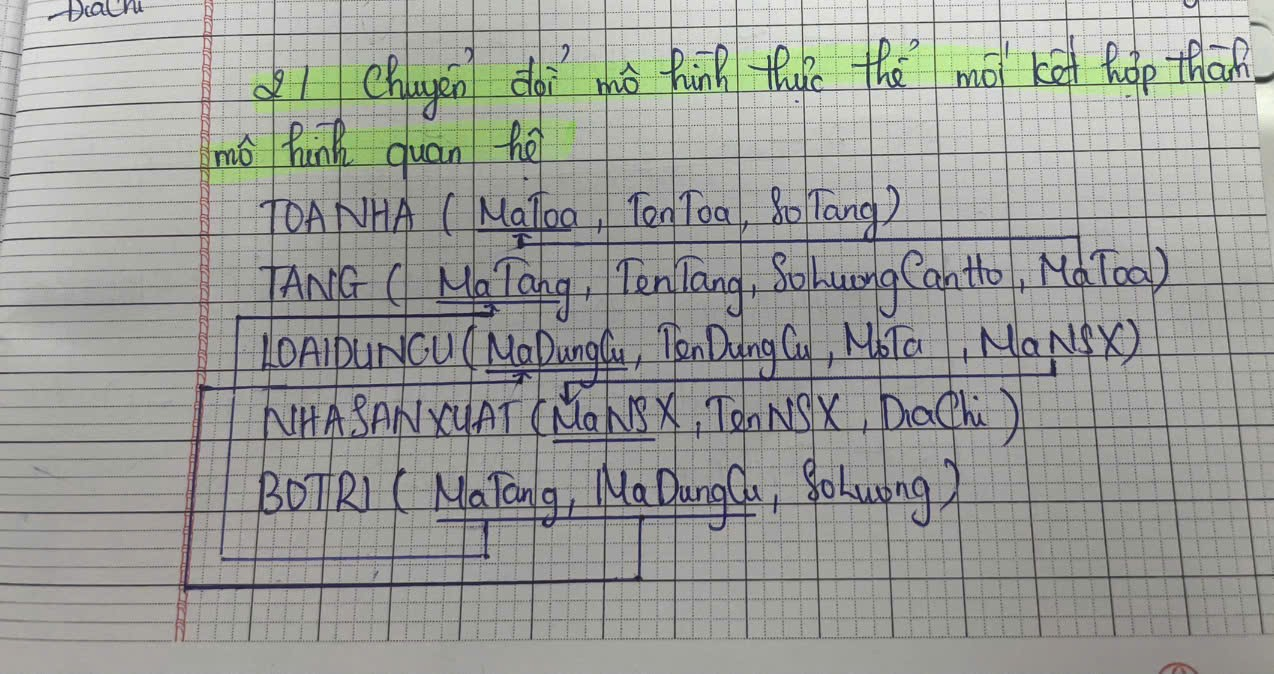 DiaChi
2/ Chuyển đổi mô hình thực thể mối kết hợp thành
mô hình quan hệ
TOANHA ( MaToa, TenToa, SoTang)
TANG ( MaTang, TenTang, SoLuongCanHo, MaToa)
LOAIDUNCU( MaDungCu, TenDungCu, MoTa, MaNSX)
NHASANXUAT ( MaNSX, TenNSX, DiaChi)
BOTRI ( MaTang, MaDungCu, SoLuong)